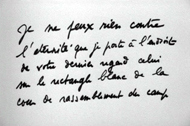 je ne peux rien contre
l'éternité que je porte à l'endroit
de votre dernier regard celui
sur le rectangle blanc de la
cour de rassemblement du camp